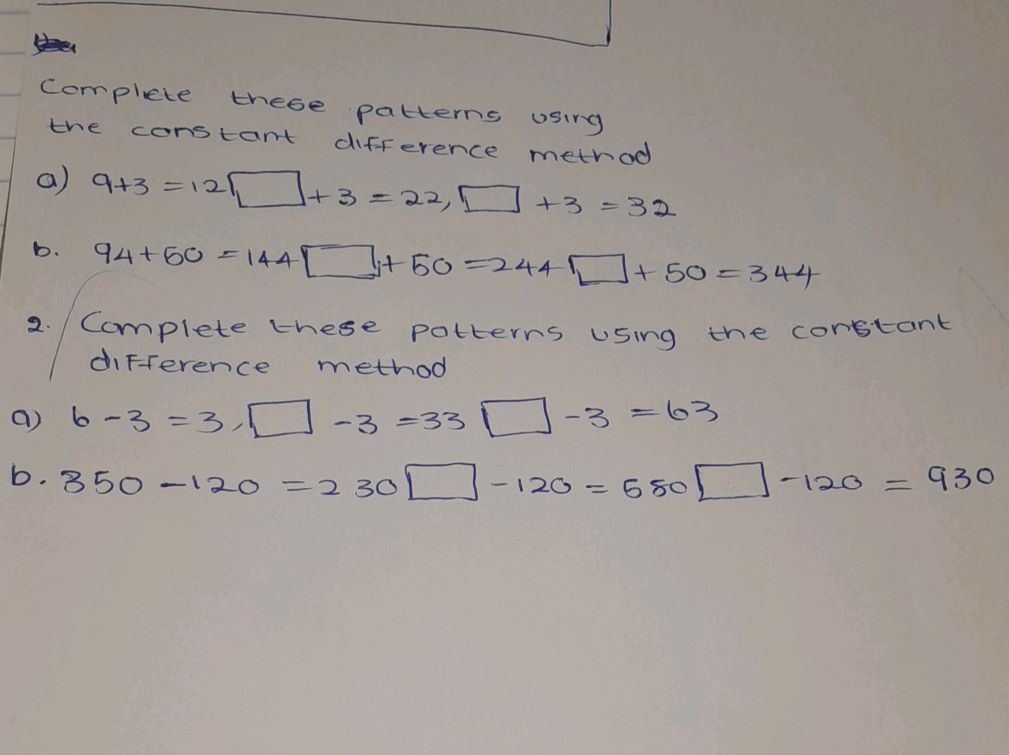 Complete these patterns using
the constant difference method
a) 9+3 = 12 □ + 3 = 22, □ + 3 = 32
b. 94+50 = 144 □ + 50 = 244 □ + 50 = 344
2. Complete these patterns using the constant
difference method
a) 6 - 3 = 3, □ - 3 = 33 □ - 3 = 63
b. 350 - 120 = 230 □ - 120 = 580 □ - 120 = 930